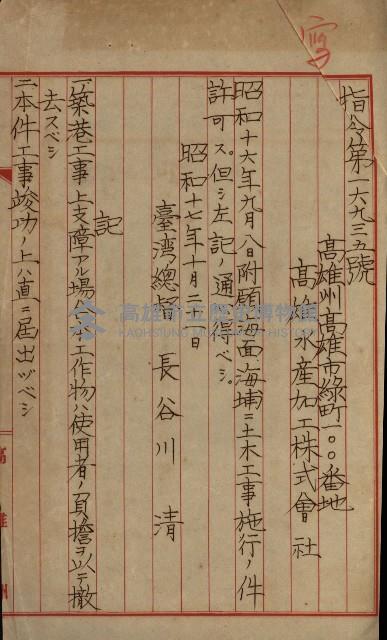 寫
指令第一六九三五號
高雄州高雄市綠町一〇〇番地
高雄水産加工株式會社
昭和十六年九月八日附願海面海埔ニ土木工事施行ノ件
許可ス。但シ左記ノ通心得ベシ。
昭和十七年十月二日
臺湾總督 長谷川清
記
一、築港工事上支障アル場合ハ本工作物ハ使用者ノ負擔ヲ以テ撤
去スベシ
二、本件工事竣功ノ上ハ直ニ届出ヅベシ
高雄市立歷史博物館
KAOHSIUNG MUSEUM OF HISTORY
高雄州